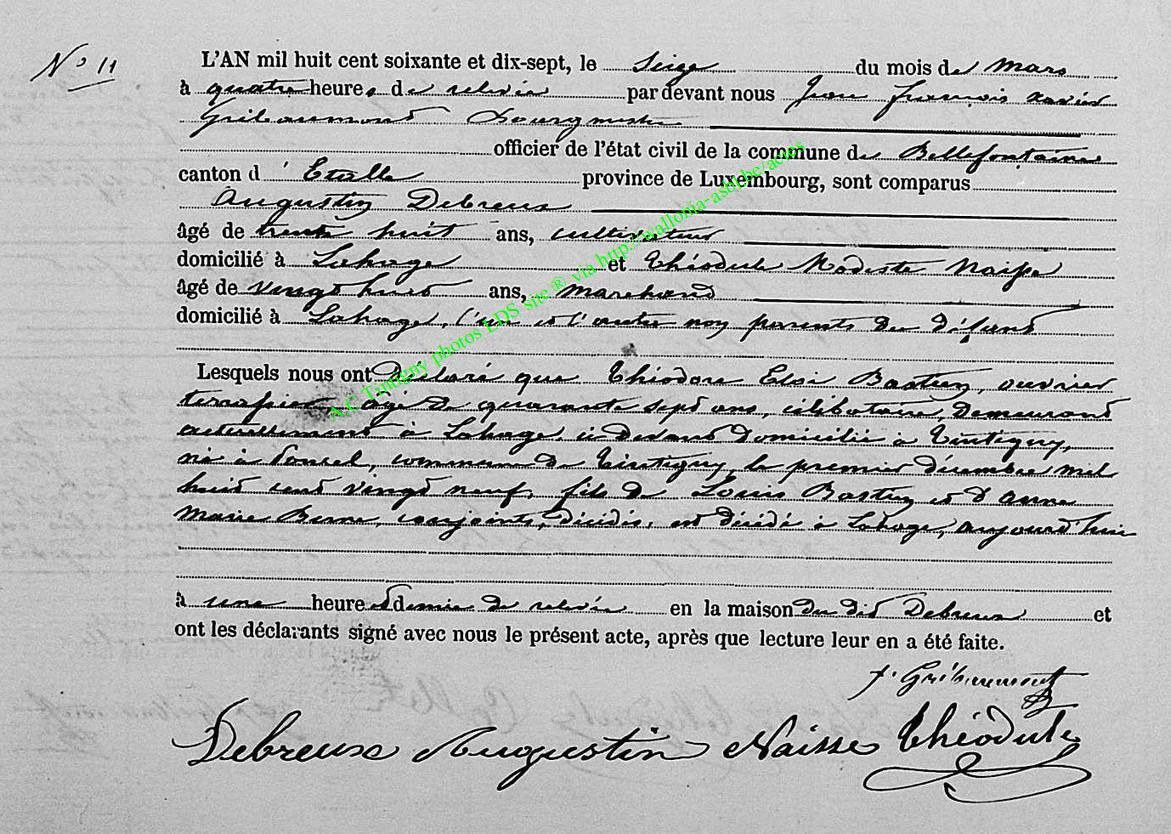 N° 11
L'AN mil huit cent soixante et dix-sept, le Seize du mois de mars
à quatre heures de relevée par devant nous Jean françois xavier
Gribaumont Bourgmestre
officier de l'état civil de la commune de Bellefontaine
canton d'Etalle province de Luxembourg, sont comparus
Augustin Debreux
âgé de trente huit ans, cultivateur
domicilié à Lahage et Théodule Modeste Naisse
âgé de vingt huit ans, marchand
domicilié à Lahage, l'un et l'autre non parents du défunt
Lesquels nous ont déclaré que Théodore Eloi Bastin, ouvrier
terrassier, âgé de quarante sept ans, célibataire, demeurant
actuellement à Lahage ci devant domicilié à Tintigny,
né à Poncel, commune de Tintigny, le premier décembre mil
huit cent vingt neuf, fils de Louis Bastin et d'anne
marie, conjoints, décédés, est décédé à Lahage, aujourd'hui
à une heure et demie de relevée en la maison du dit Debreux et
ont les déclarants signé avec nous le présent acte, après que lecture leur en a été faite.
Gribaumont
Debreux Augustin Naisse Théodule
A.C Tintigny photos EDS site ® via http://wallonia-asbl.be/actes